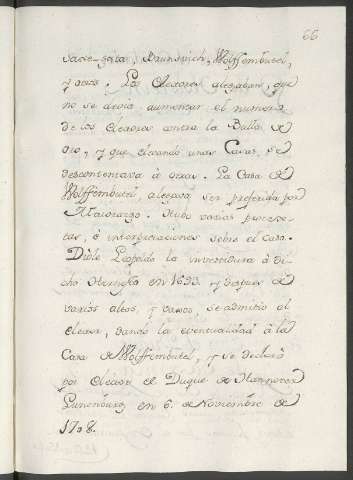 66
Saxe-Gota, Brunswich, Wolffembutel,
y otros. Los Electores alegaban, que
no se devia aumentar el numero
de los Electores contra la Bulla de
Oro, y que elevando unas Casas, se
descontentava à otras. La Casa de
Wolffembutel, alegava ser preferida por
Maiorazgo. Hubo varias protes-
tas, è interpretaciones sobre el caso.
Diòle Leopoldo la investidura à di-
cho en 1693. y despues de
varios altos, y vajos, se admitio el
Elector, dando la eventualidad à la
Casa de Wolffembutel, y se declarò
por Elector el Duque de Hannover
Lunenburg en 6. de Noviembre de
1708.